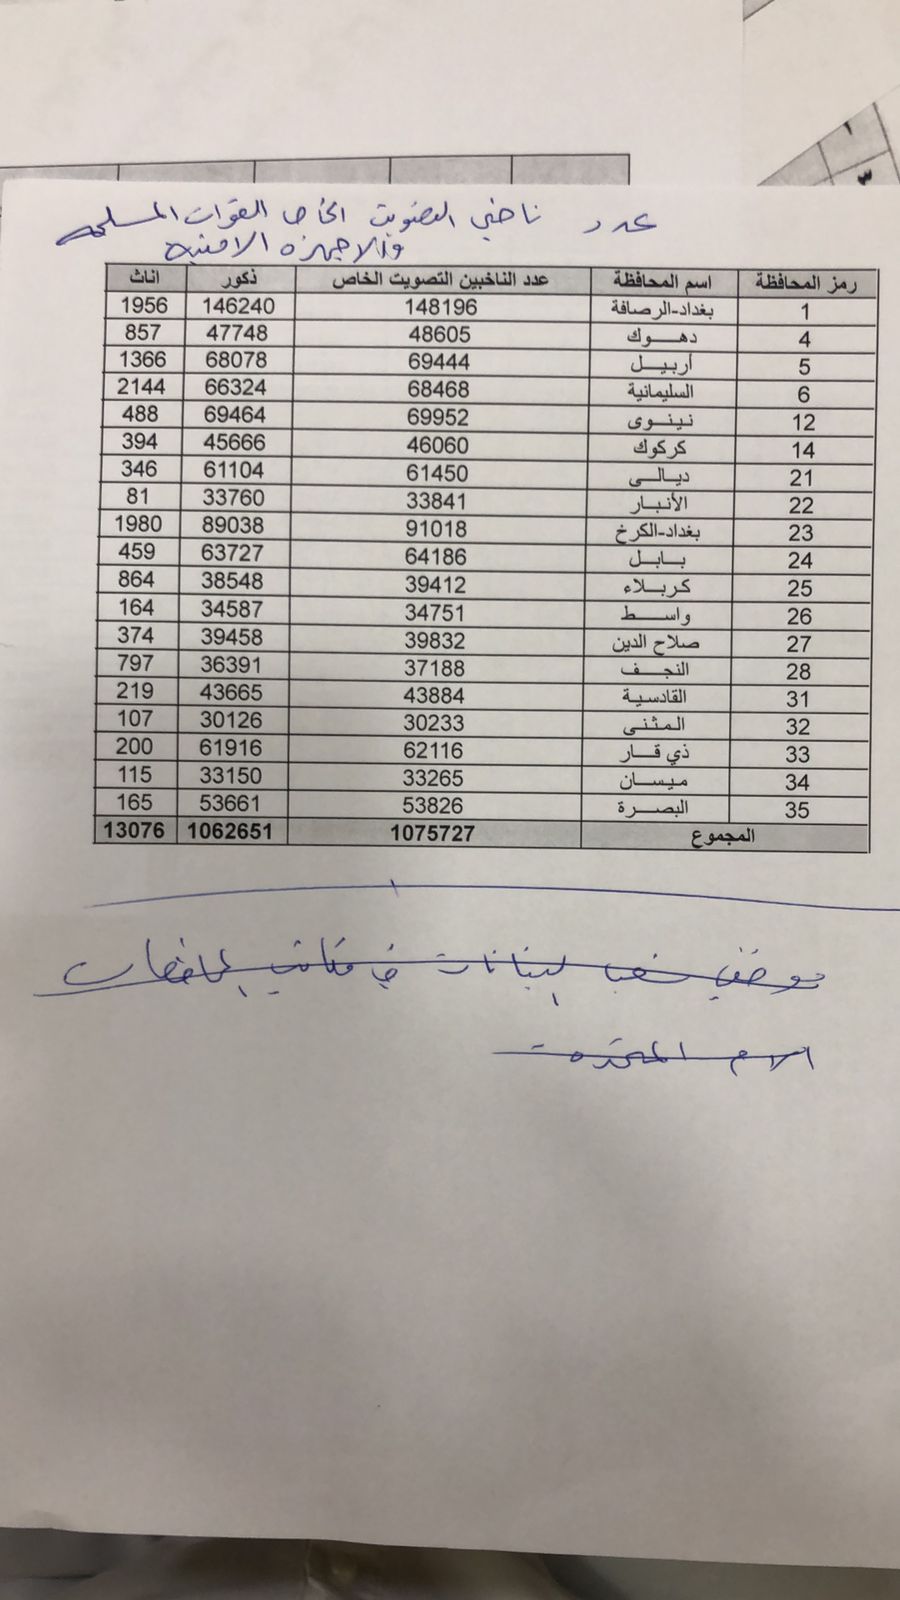 عدد ناخبي التصويت الخاص القوات المسلحه
والاجهزه الامنيه
رمز المحافظة اسم المحافظة عدد الناخبين التصويت الخاص ذكور اناث
1 بغداد-الرصافة 148196 146240 1956
4 دهــوك 48605 47748 857
5 أربيــل 69444 68078 1366
6 السليمانية 68468 66324 2144
12 نينــوى 69952 69464 488
14 كركوك 46060 45666 394
21 ديـالــى 61450 61104 346
22 الأنبـار 33841 33760 81
23 بغداد-الكرخ 91018 89038 1980
24 بــابــل 64186 63727 459
25 كربــلاء 39412 38548 864
26 واســـط 34751 34587 164
27 صلاح الدين 39832 39458 374
28 النجــف 37188 36391 797
31 القادسية 43884 43665 219
32 المـثنـى 30233 30126 107
33 ذي قـــار 62116 61916 200
34 ميســـان 33265 33150 115
35 البصــرة 53826 53661 165
المجموع 1075727 1062651 13076
موظفي شعب البيانات في مكاتب المحافظات
الامم المتحده